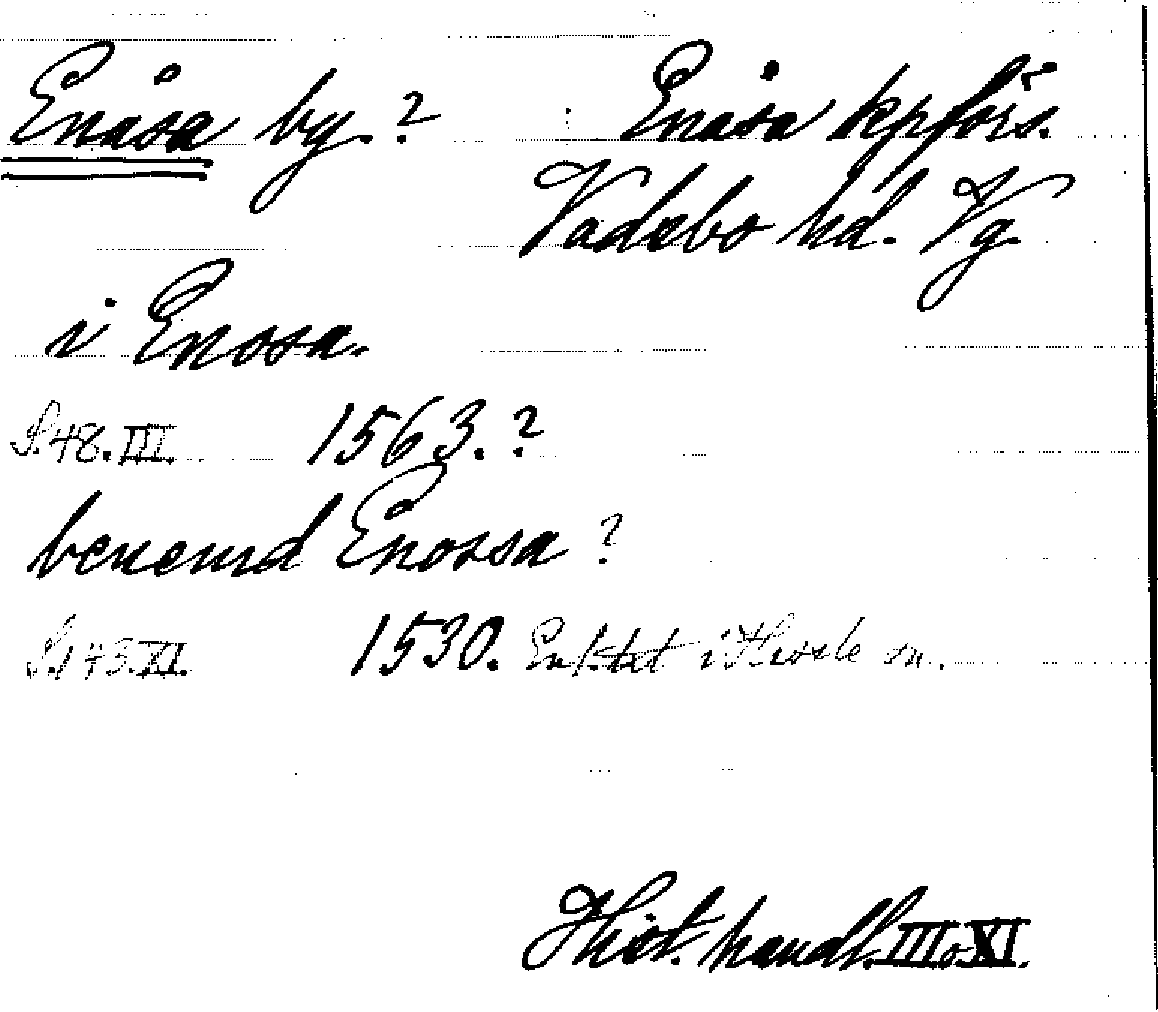 Enåsa by. ? Enåsa kpförs.
Vadsbo hd. Vg.
i Enosa.
S. 48. III. 1563. ?
benemd Enossa ?
S. 143. XI. 1530. i Hassle sn.
Hist. handl. III o XI.